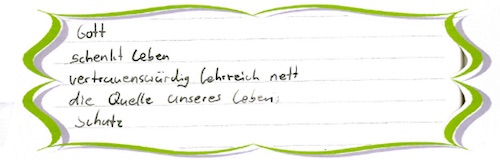 Gott
schenkt Leben
vertrauenswürdig lehrreich nett
die Quelle unseres Lebens
Schutz